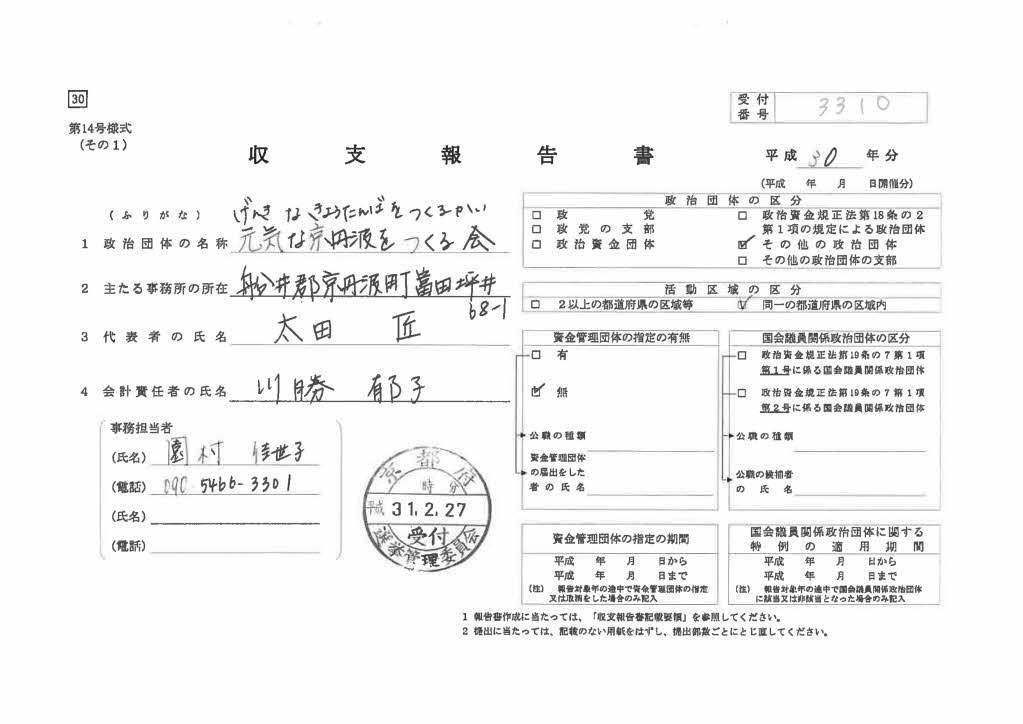 30
受付番号 3310
第14号様式
(その1)
収支報告書
平成 30 年分
(平成 年 月 日開催分)
(ふりがな) げんきなきょうたんばをつくるかい
1 政治団体の名称 元気な京丹波をつくる会
2 主たる事務所の所在 船井郡京丹波町富田坪井
68-1
3 代表者の氏名 太田 匠
4 会計責任者の氏名 川勝 郁子
事務担当者
(氏名) 園村 佳世子
(電話) 090-5466-3301
(氏名)
(電話)
京都府
時 分
平成 31.2.27
受付
選挙管理委員会
政治団体の区分
□ 政党
□ 政党の支部
□ 政治資金団体
□ 政治資金規正法第18条の2
第1項の規定による政治団体
☑ その他の政治団体
□ その他の政治団体の支部
活動区域の区分
□ 2以上の都道府県の区域等
☑ 同一の都道府県の区域内
資金管理団体の指定の有無
□ 有
☑ 無
公職の種類
資金管理団体
の届出をした
者の氏名
国会議員関係政治団体の区分
□ 政治資金規正法第19条の7第1項
第1号に係る国会議員関係政治団体
□ 政治資金規正法第19条の7第1項
第2号に係る国会議員関係政治団体
公職の種類
公職の候補者
の氏名
資金管理団体の指定の期間
平成 年 月 日から
平成 年 月 日まで
(注) 報告対象年の途中で資金管理団体の指定
又は取消をした場合のみ記入
国会議員関係政治団体に関する
特例の適用期間
平成 年 月 日から
平成 年 月 日まで
(注) 報告対象年の途中で国会議員関係政治団体
に該当又は非該当となった場合のみ記入
1 報告書作成に当たっては、「収支報告書記載要領」を参照してください。
2 提出に当たっては、記載のない用紙をはずし、提出部数ごとにとじ直してください。